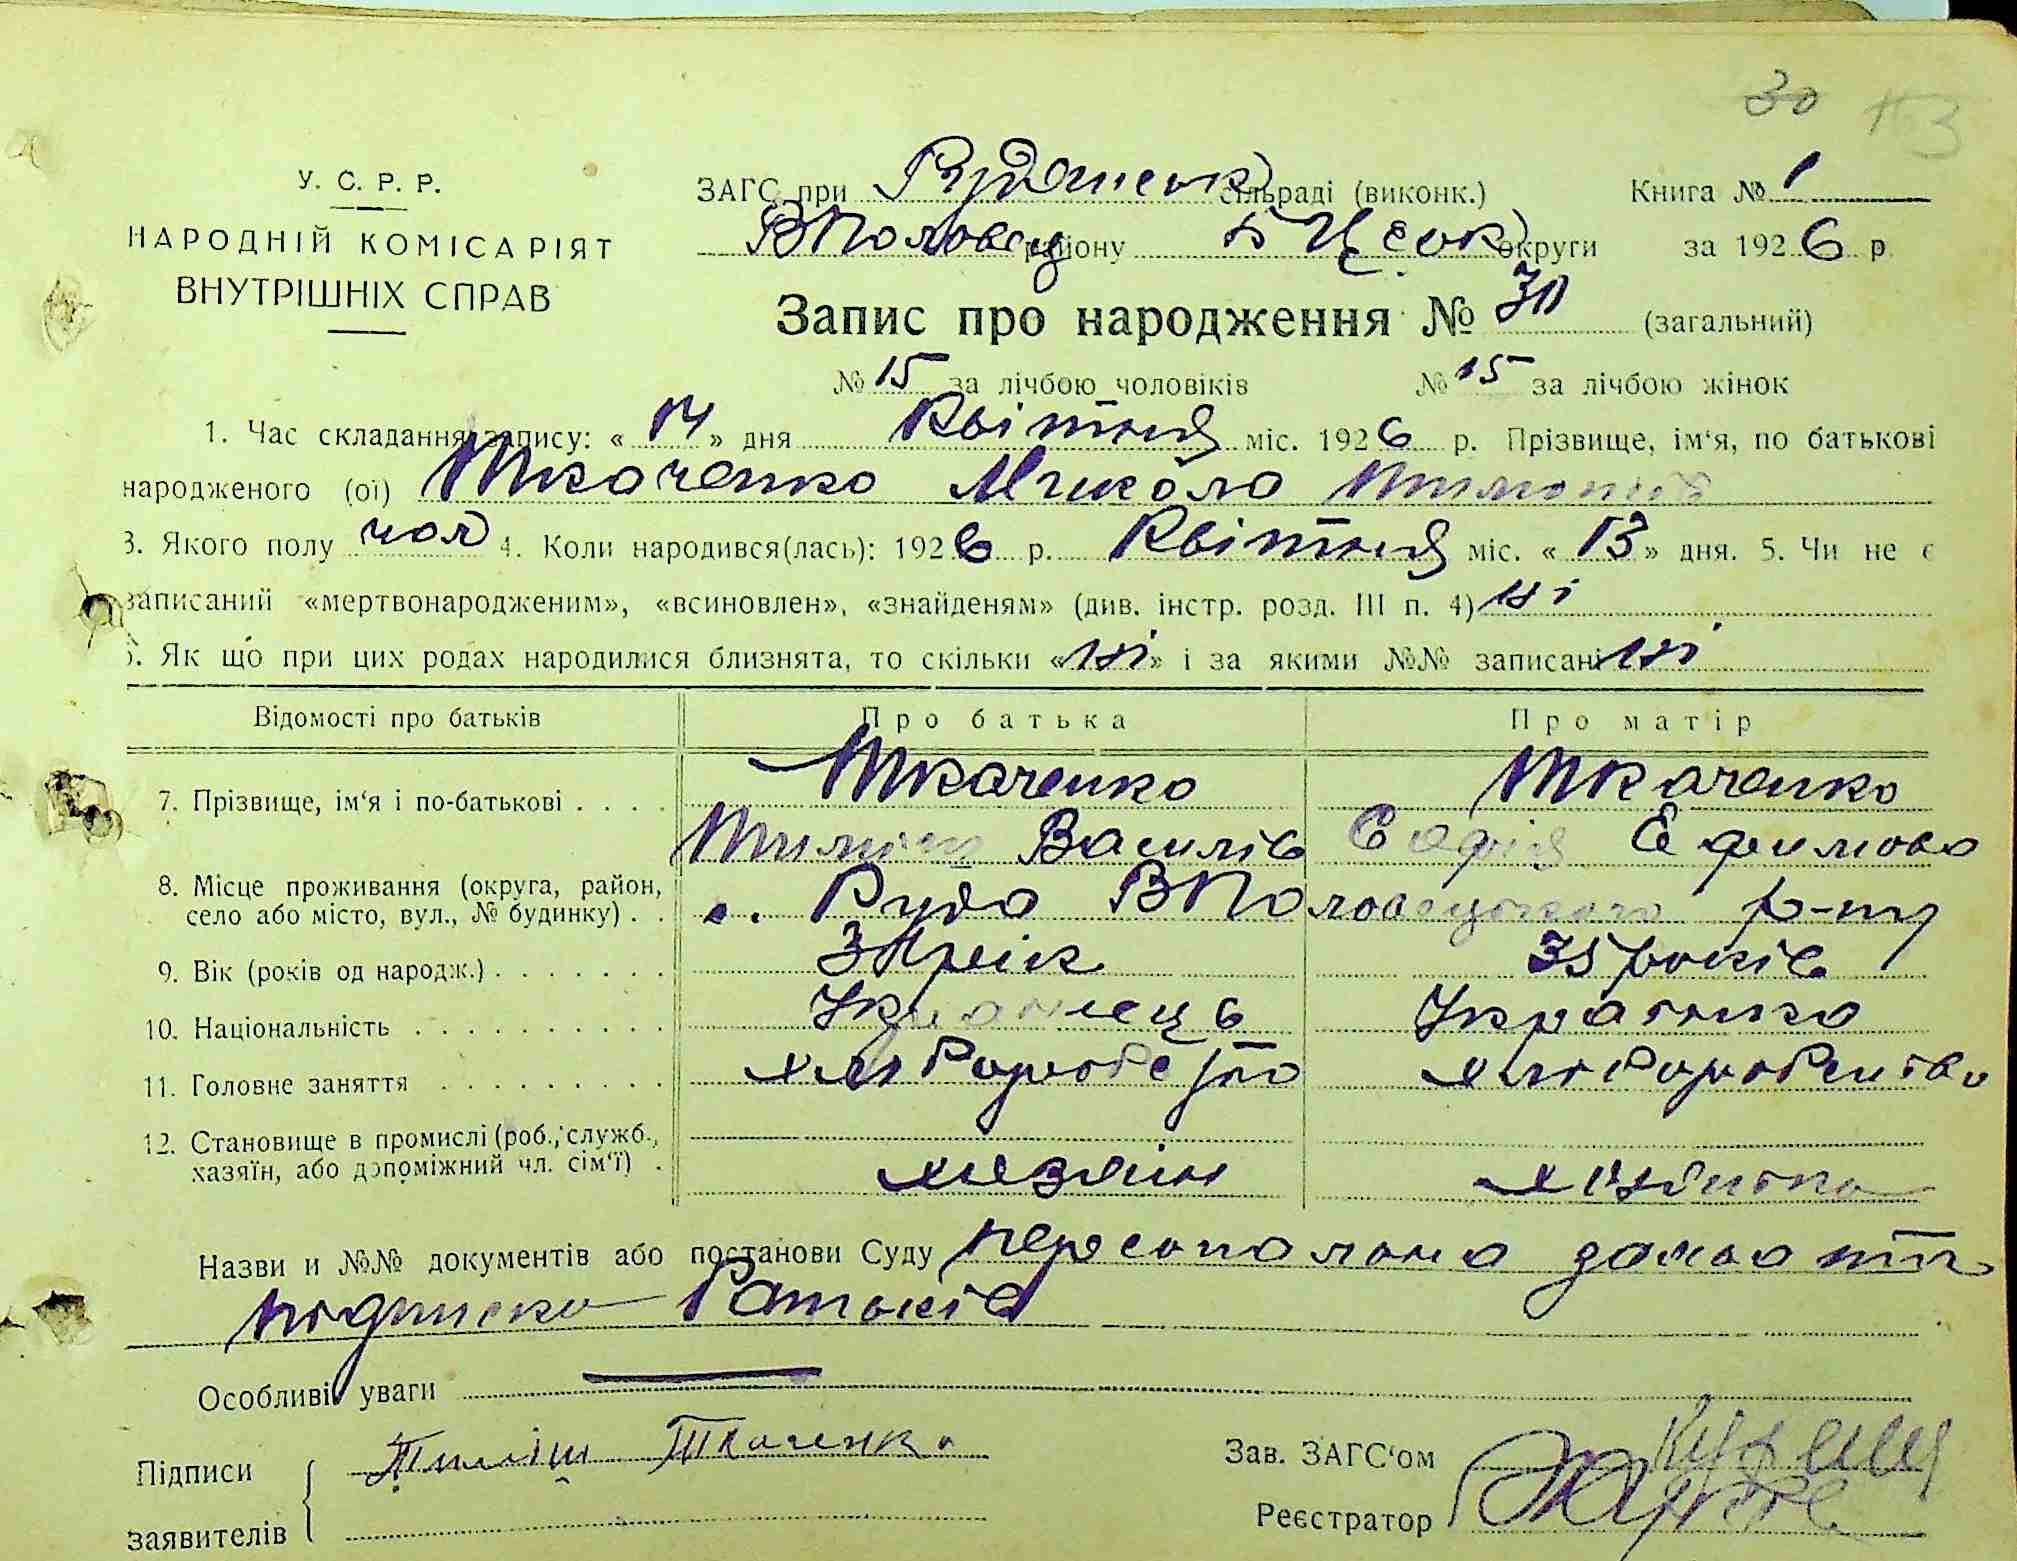 30 153
У. С. Р. Р.
НАРОДНІЙ КОМІСАРІЯТ
ВНУТРІШНІХ СПРАВ
ЗАГС при Рудянськ сільраді (виконк.) Книга № 1
ВПоловец району БЦерк округи за 1926 р.
Запис про народження № 30 (загальний)
№ 15 за лічбою чоловіків № 15 за лічбою жінок
1. Час складання запису: « 14 » дня Квітня міс. 1926 р. Прізвище, ім‘я, по батькові
народженого (ої) Ткаченко Микола
3. Якого полу чол 4. Коли народився(лась): 1926 р. Квітня міс. « 13 » дня. 5. Чи не є
записаний «мертвонародженим», «всиновлен», «знайденям» (див. інстр. розд. III п. 4) ні
6. Як що при цих родах народилися близнята, то скільки « ні » і за якими №№ записані ні
Відомості про батьків Про батька Про матір
7. Прізвище, ім‘я і по-батькові . . . . Ткаченко Ткаченко
Василів Софія Ефимова
8. Місце проживання (округа, район,
село або місто, вул., № будинку) . . с. Руда ВПоловецького р-ну
9. Вік (років од народж.) . . . . . . . рік 35 років
10. Національність . . . . . . . . . . Українець Українка
11. Головне заняття . . . . . . . . . хліборобство хліборобство
12. Становище в промислі (роб., служб.,
хазяїн, або допоміжний чл. сім‘ї) . хазяїн
Назви и №№ документів або постанови Суду персональна заява та
підписка батьків
Особливі уваги
Підписи Ткаченко
заявителів
Зав. ЗАГС‘ом
Реєстратор